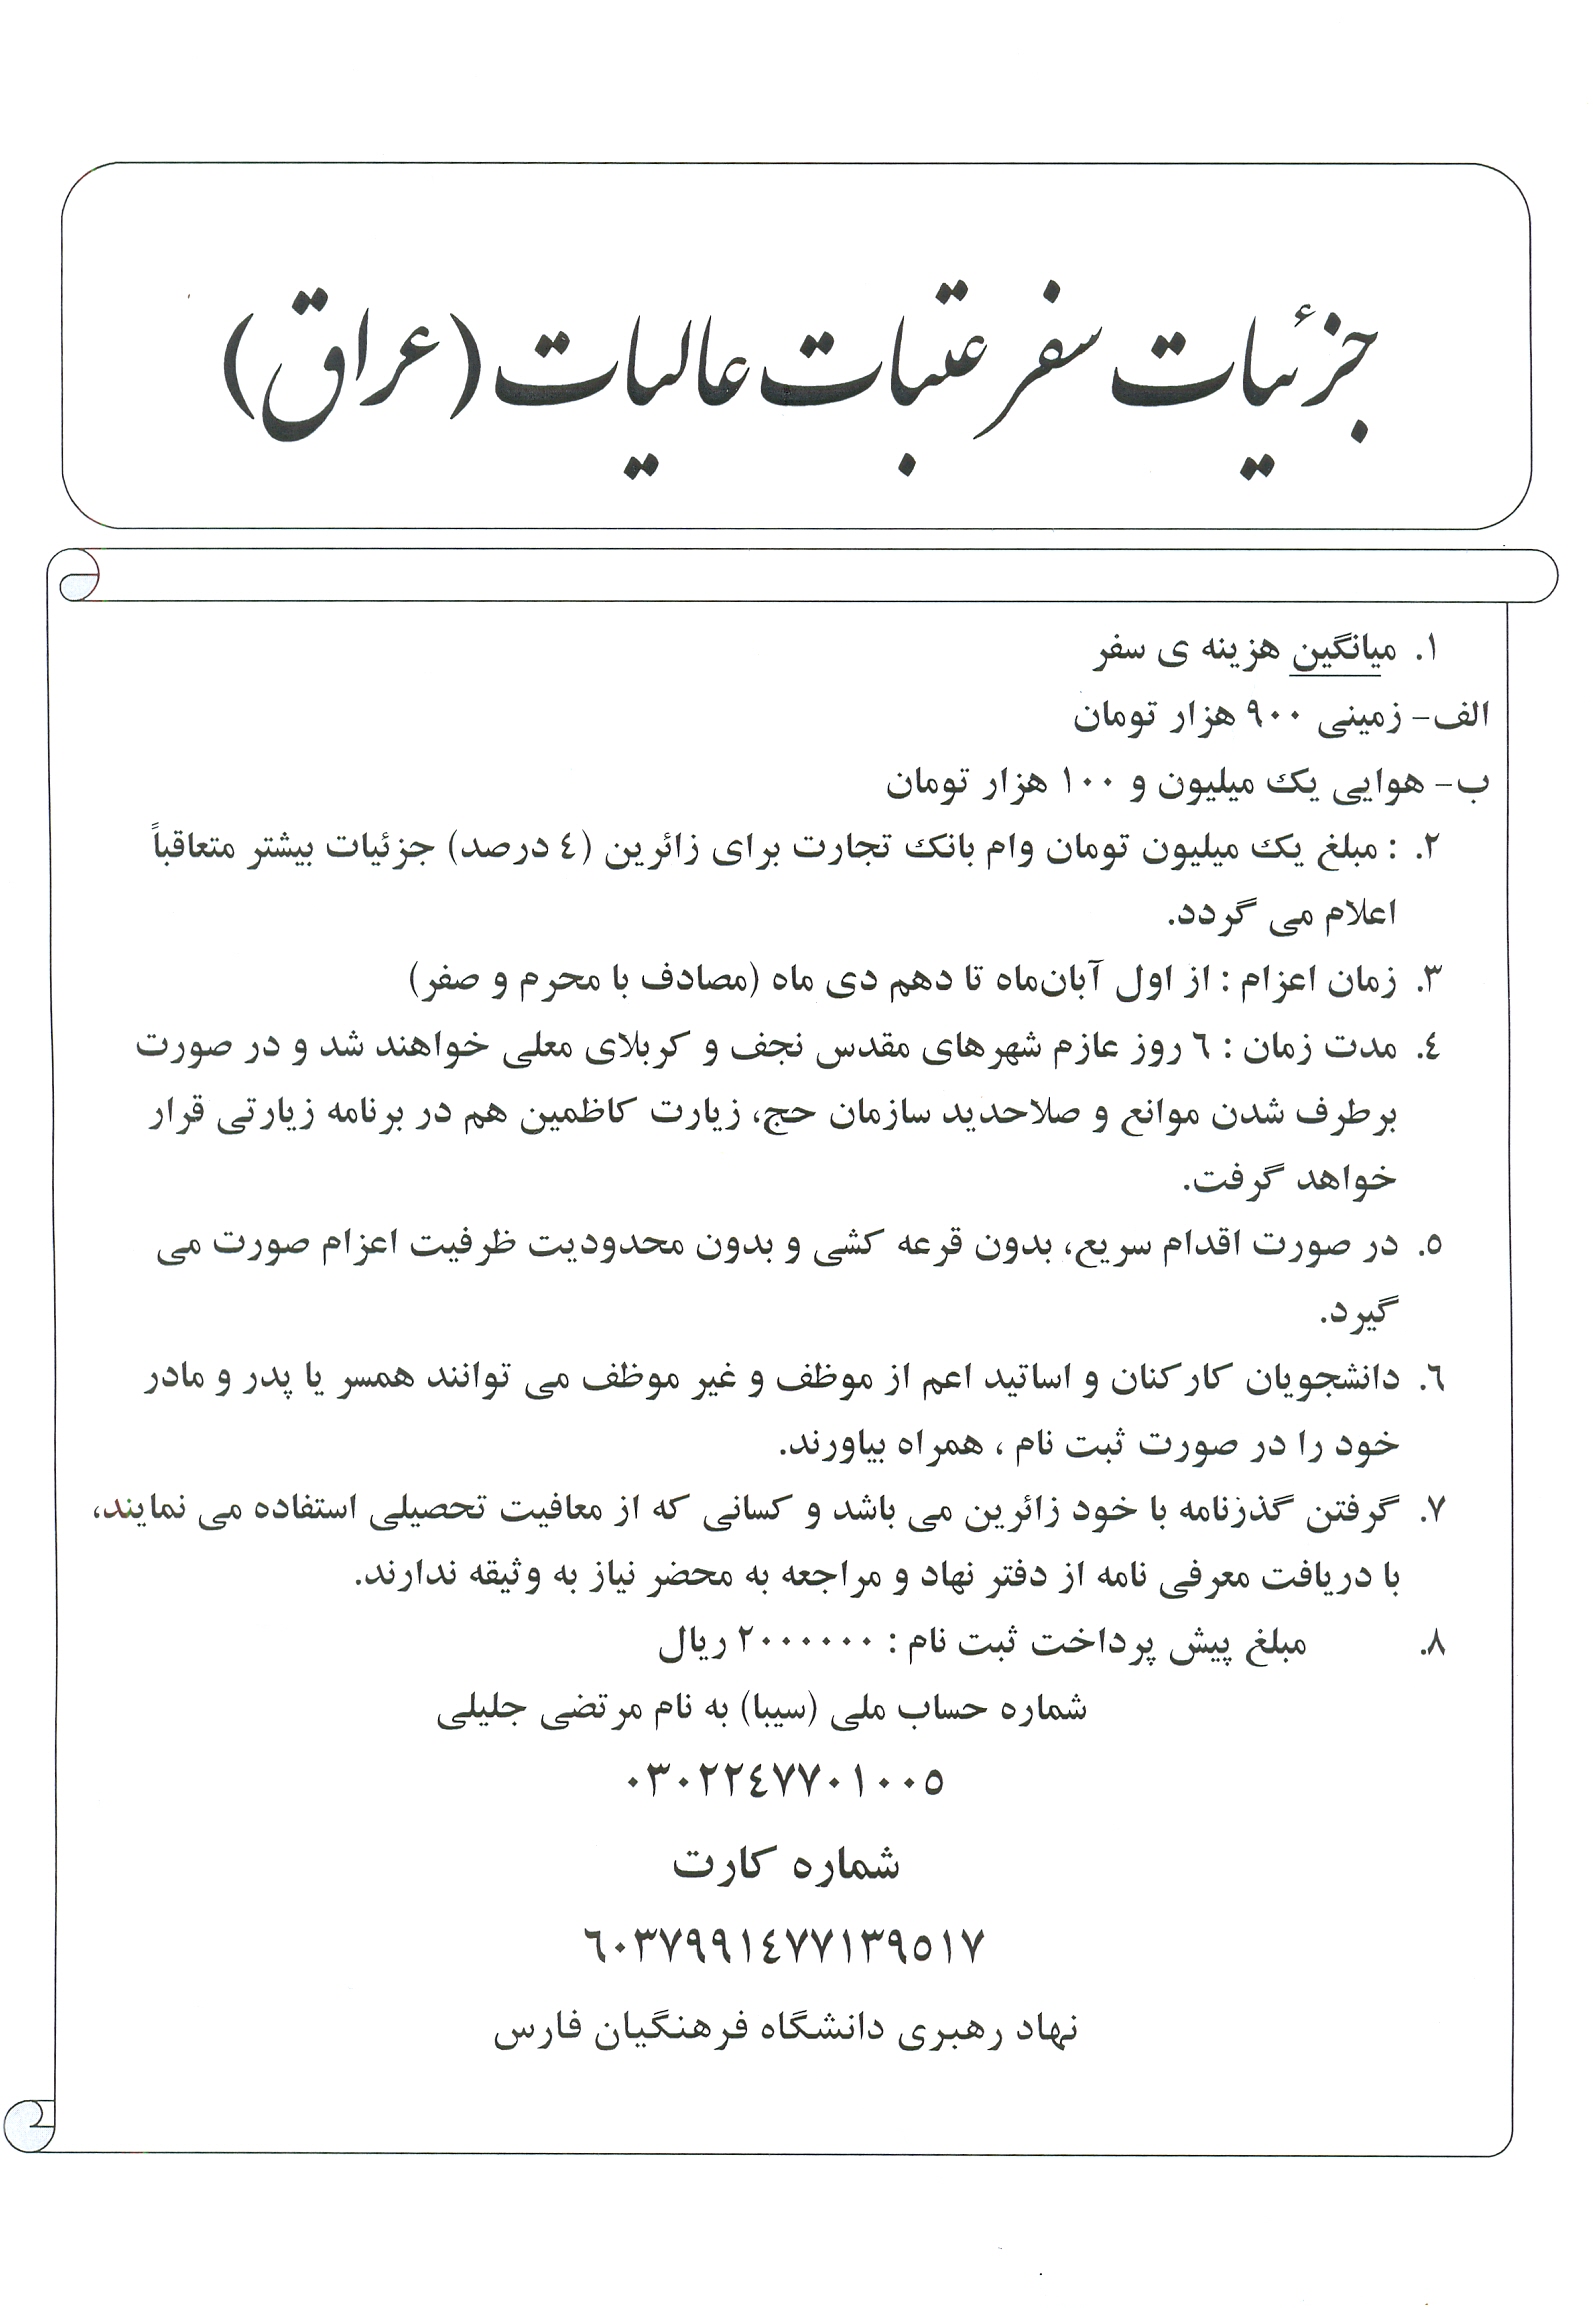 جزئیات سفر عتبات عالیات (عراق)
۱. میانگین هزینه ی سفر
الف- زمینی ۹۰۰ هزار تومان
ب- هوایی یک میلیون و ۱۰۰ هزار تومان
۲. : مبلغ یک میلیون تومان وام بانک تجارت برای زائرین (٤ درصد) جزئیات بیشتر متعاقباً
اعلام می گردد.
۳. زمان اعزام : از اول آبان‌ماه تا دهم دی ماه (مصادف با محرم و صفر)
٤. مدت زمان : ٦ روز عازم شهرهای مقدس نجف و کربلای معلی خواهند شد و در صورت
برطرف شدن موانع و صلاحدید سازمان حج، زیارت کاظمین هم در برنامه زیارتی قرار
خواهد گرفت.
٥. در صورت اقدام سریع، بدون قرعه کشی و بدون محدودیت ظرفیت اعزام صورت می
گیرد.
٦. دانشجویان کارکنان و اساتید اعم از موظف و غیر موظف می توانند همسر یا پدر و مادر
خود را در صورت ثبت نام ، همراه بیاورند.
۷. گرفتن گذرنامه با خود زائرین می باشد و کسانی که از معافیت تحصیلی استفاده می نمایند،
با دریافت معرفی نامه از دفتر نهاد و مراجعه به محضر نیاز به وثیقه ندارند.
۸. مبلغ پیش پرداخت ثبت نام : ۲۰۰۰۰۰۰ ریال
شماره حساب ملی (سیبا) به نام مرتضی جلیلی
۰۳۰۲۲٤۷۷۰۱۰۰٥
شماره کارت
٦۰۳۷۹۹۱٤۷۷۱۳۹٥۱۷
نهاد رهبری دانشگاه فرهنگیان فارس